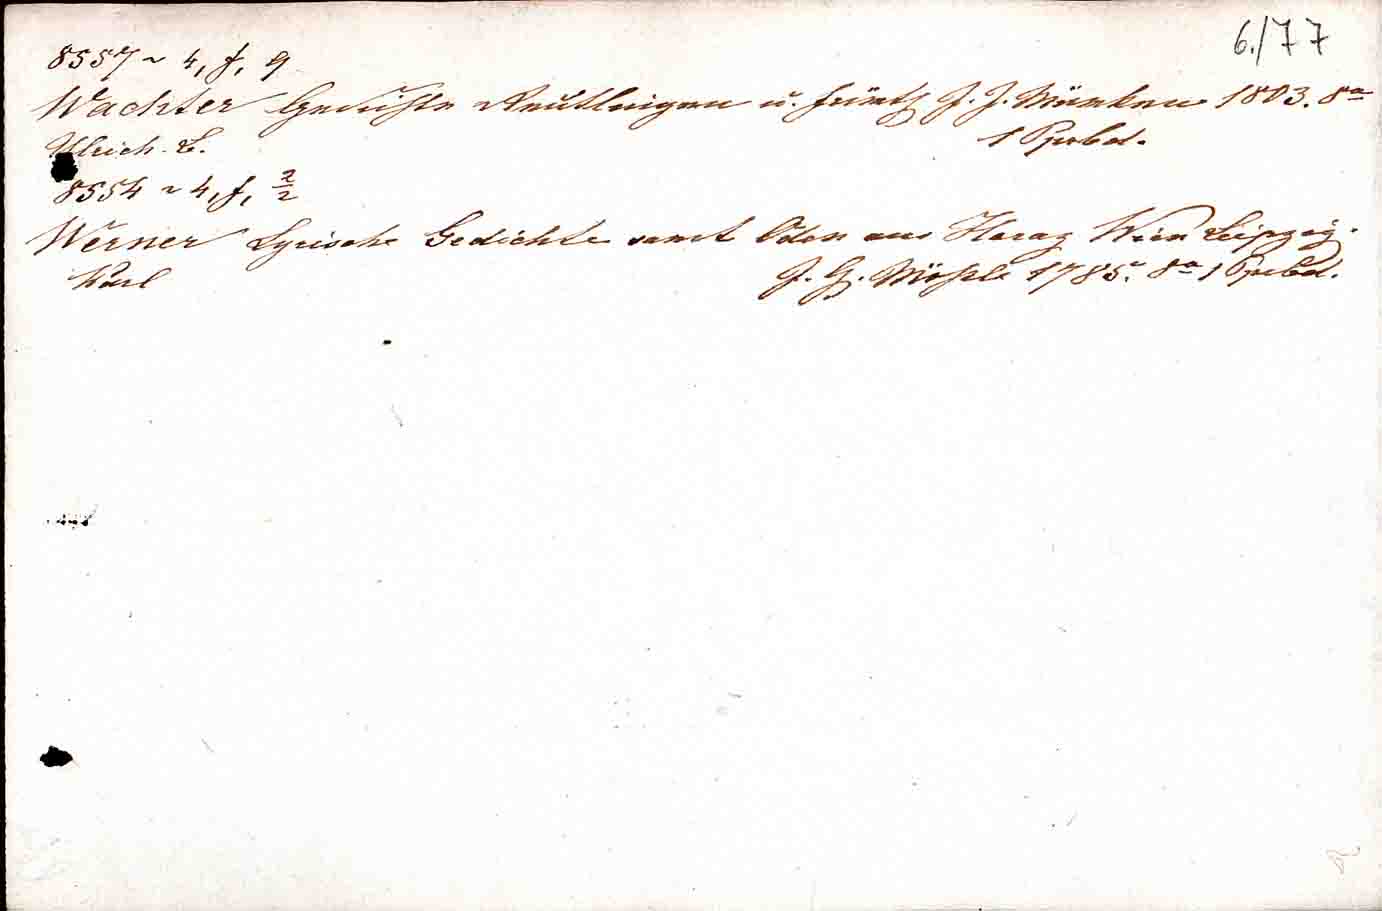 6./77
8557 ~ 4, f, 9
Wachter Gedichte Reutlingen u. J. J. Mäcken 1803. 8°
Ulrich. L. 1 Ppbd.
8554 ~ 4, f, 2/2
Werner Lyrische Gedichte samt Oden aus Horaz Wien Leipzig.
Karl J. G. Mößle 1785. 8° 1 Ppbd.